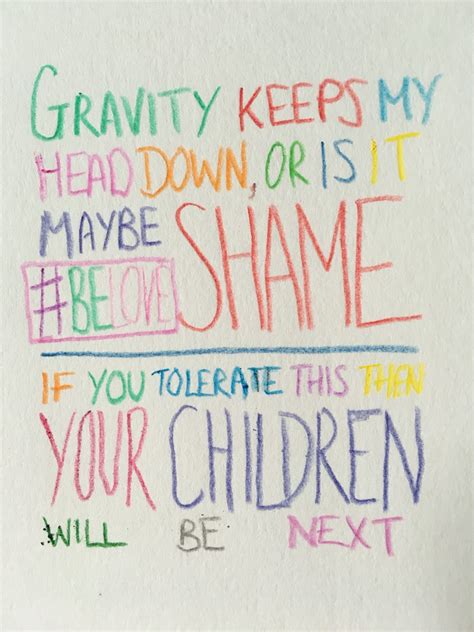 GRAVITY KEEPS MY
HEAD DOWN, OR IS IT
MAYBE SHAME
#BELOVE
IF YOU TOLERATE THIS THEN
YOUR CHILDREN
WILL BE NEXT